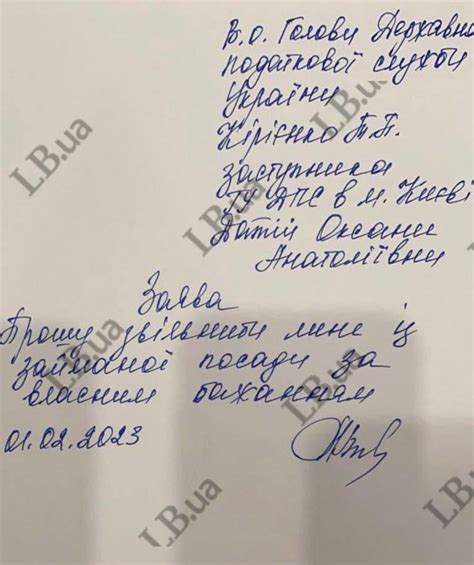 В.о. Голови Державної
податкової служби
України
Кірієнко Т.П.
заступника
ГУ ДПС в м. Києві
Датій Оксани
Анатоліївни
Заява
Прошу звільнити мене із
займаної посади за
власним бажанням
01.02.2023
LB.ua
LB.ua
LB.ua
LB.ua
LB.ua
LB.ua
LB.ua